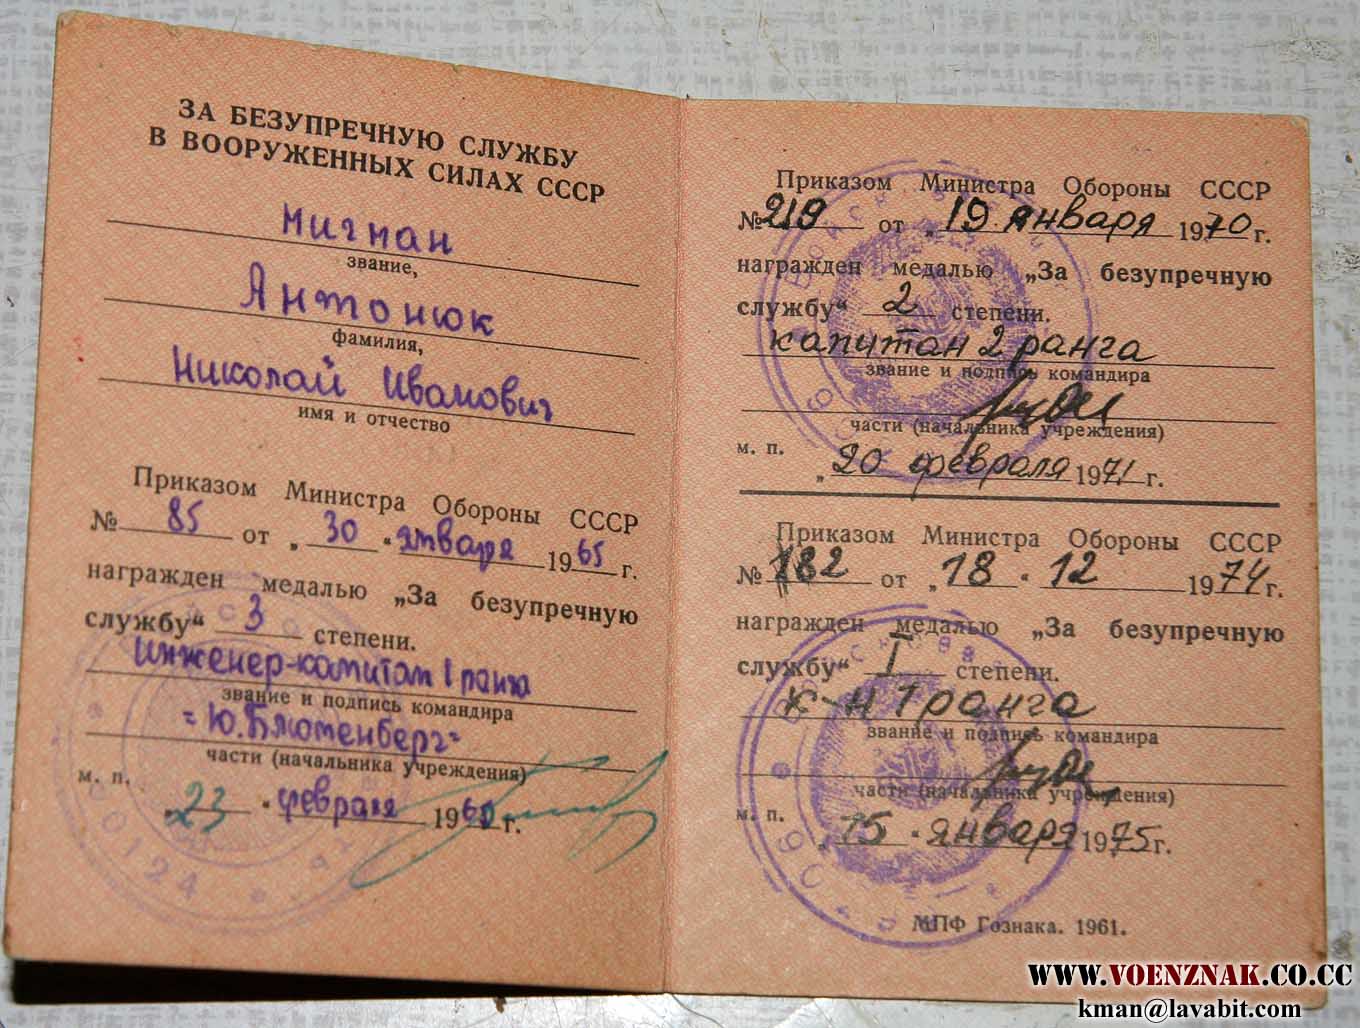 ЗА БЕЗУПРЕЧНУЮ СЛУЖБУ
В ВООРУЖЕННЫХ СИЛАХ СССР
Мичман
звание,
Антонюк
фамилия,
Николай Иванович
имя и отчество
Приказом Министра Обороны СССР
№ 85 от „30“ января 1965 г.
награжден медалью „За безупречную
службу“ 3 степени.
инженер-капитан 1 ранга
звание и подпись командира
=Ю.Блютенберг=
части (начальника учреждения)
м. п.
„23“ февраля 196 г.
20124
Приказом Министра Обороны СССР
№219 от „19 января 1970 г.
награжден медалью „За безупречную
службу“ 2 степени.
капитан 2 ранга
звание и подпись командира
части (начальника учреждения)
м. п.
„20 февраля 1971 г.
Приказом Министра Обороны СССР
№ 182 от „18“ 12 1974 г.
награжден медалью „За безупречную
службу“ I степени.
к-н 1 ранга
звание и подпись командира
части (начальника учреждения)
м. п.
„15“ января 1975 г.
МПФ Гознака. 1961.
WWW.VOENZNAK.CO.CC
kman@lavabit.com